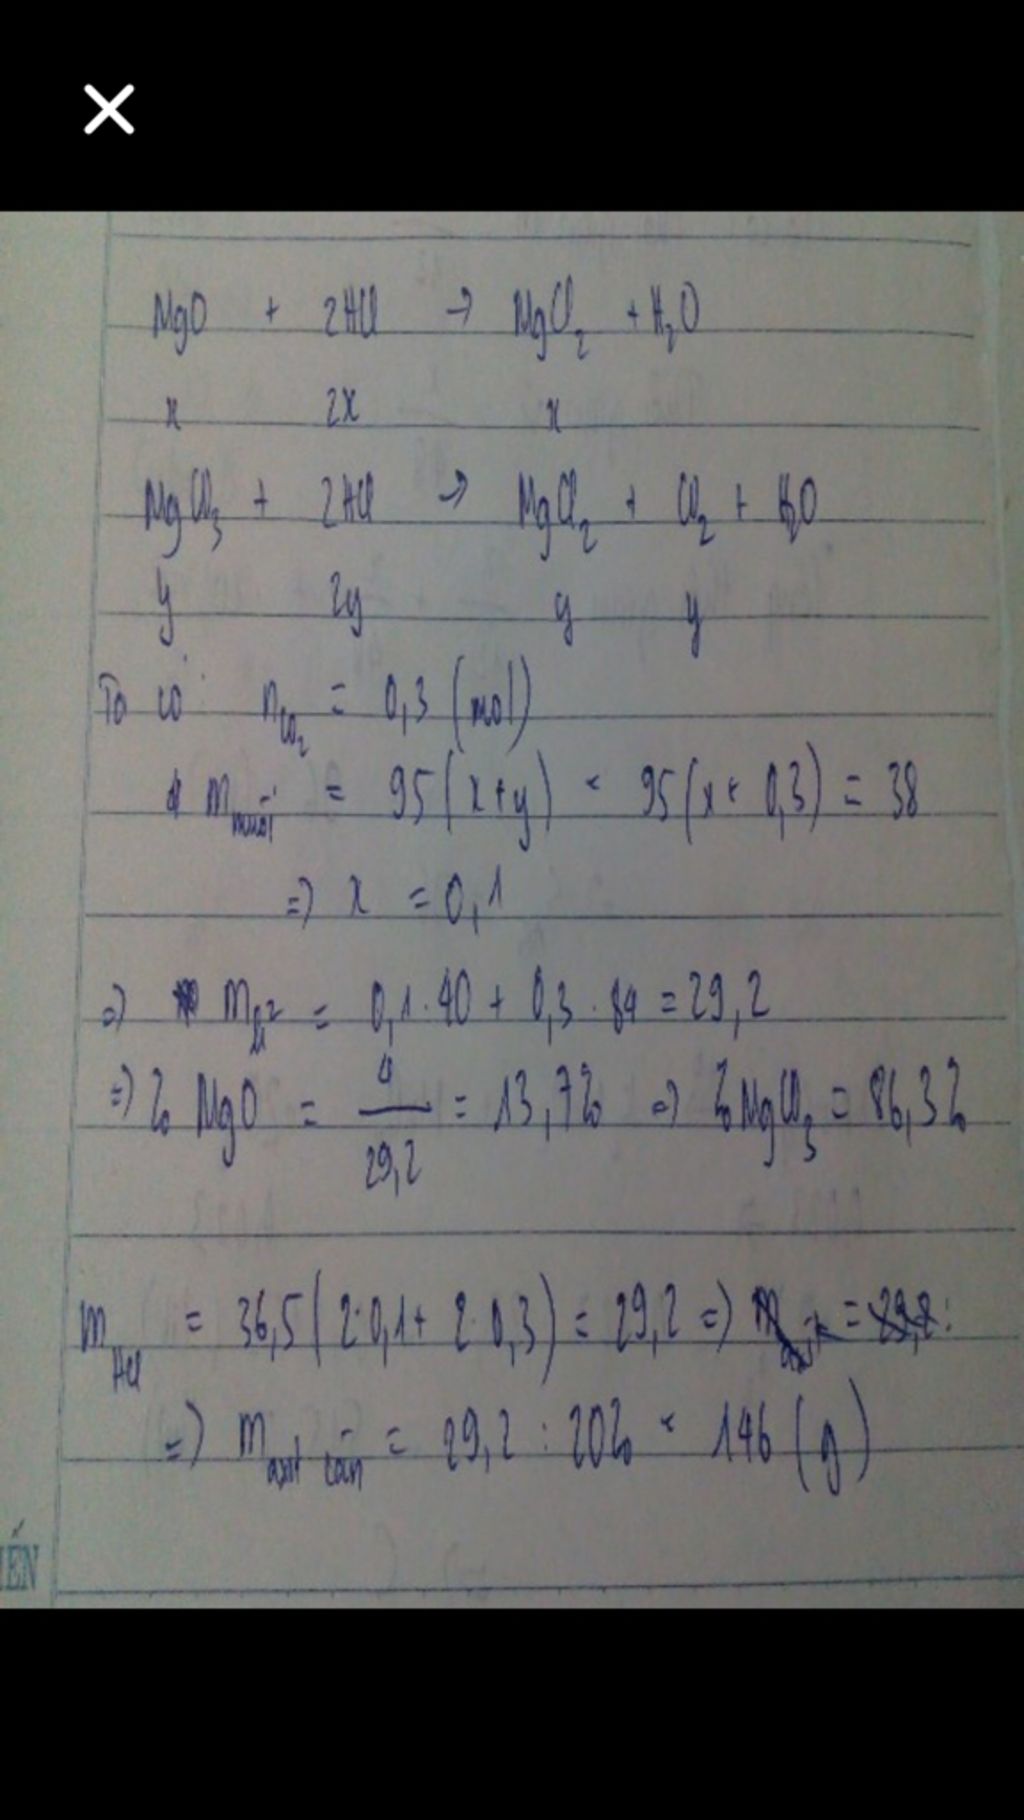 MgO + 2HCl → MgCl₂ + H₂O
x 2x x
MgCO₃ + 2HCl → MgCl₂ + CO₂ + H₂O
y 2y y y
Ta có: nCO₂ = 0,3 (mol)
m muối = 95(x+y) = 95(x+0,3) = 38
=> x = 0,1
=> m h² = 0,1.40 + 0,3.84 = 29,2
=> % MgO = 4/29,2 = 13,7% => % MgCO₃ = 86,3%
mHCl = 36,5(2.0,1 + 2.0,3) = 29,2 =>
=> m axit cần = 29,2 : 20% = 146 (g)
IẾN